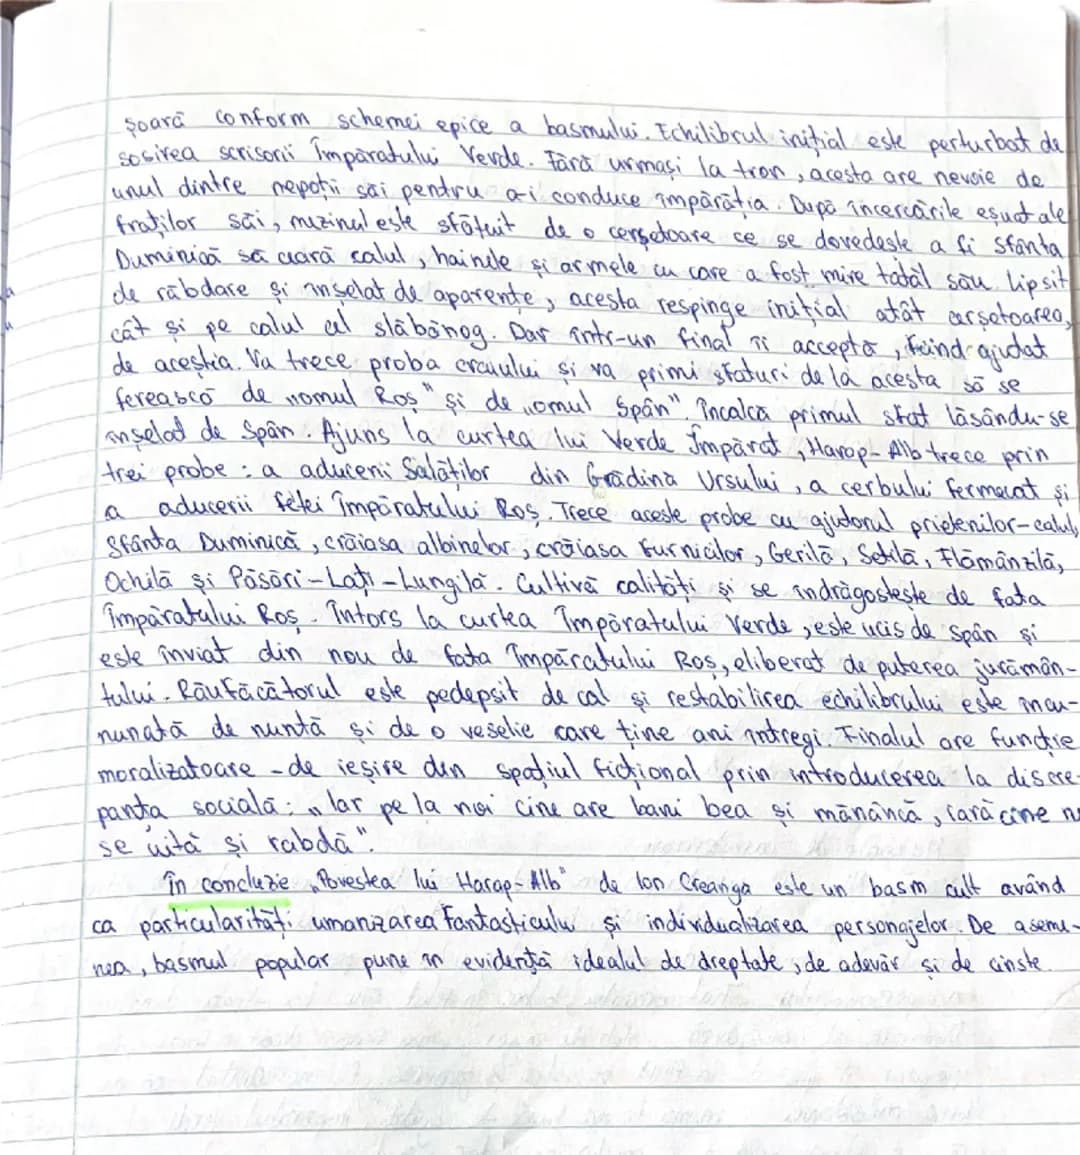 șoară conform schemei epice a basmului. Echilibrul inițial este perturbat de
sosirea scrisorii Împăratului Verde. Fără urmași la tron, acesta are nevoie de
unul dintre nepoții săi pentru a-i conduce împărăția. După încercările eșuat ale
fraților săi, mezinul este sfătuit de o cerșetoare ce se dovedește a fi Sfânta
Duminică să ceară calul, hainele și armele cu care a fost mire tatăl său. Lipsit
de răbdare și înșelat de aparențe, acesta respinge inițial atât cerșetoarea,
cât și pe calul cel slăbănog. Dar într-un final îi acceptă, fiind ajutat
de aceștia. Va trece proba craiului și va primi sfaturi de la acesta să se
ferească de "omul Roș" și de "omul Spân". Încalcă primul sfat lăsându-se
înșelat de Spân. Ajuns la curtea lui Verde Împărat, Harap-Alb trece prin
trei probe: a aducerii Salăților din Grădina Ursului, a cerbului fermecat și
a aducerii fetei Împăratului Roș. Trece aceste probe cu ajutorul prietenilor-calul,
Sfânta Duminică, crăiasa albinelor, crăiasa furnicilor, Gerilă, Setilă, Flămânzilă,
Ochilă și Păsări-Lați-Lungilă. Cultivă calități și se îndrăgostește de fata
Împăratului Roș. Întors la curtea Împăratului Verde, este ucis de Spân și
este înviat din nou de fata Împăratului Roș, eliberat de puterea jurămân-
tului. Răufăcătorul este pedepsit de cal și restabilirea echilibrului este încu-
nunată de nuntă și de o veselie care ține ani întregi. Finalul are funcție
moralizatoare - de ieșire din spațiul ficțional prin introducerea la discre-
panța socială: „Iar pe la noi cine are bani bea și mănâncă, iară cine nu
se uită și rabdă".
În concluzie „Povestea lui Harap-Alb" de Ion Creanga este un basm cult având
ca particularități umanizarea fantasticului și individualizarea personajelor. De aseme-
nea, basmul popular pune în evidență idealul de dreptate, de adevăr și de cinste.